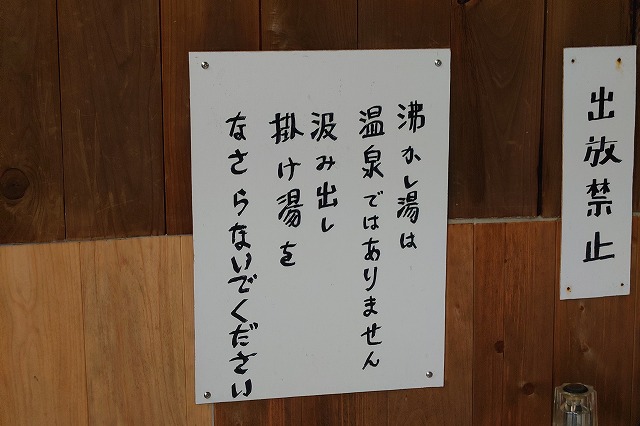 沸かし湯は
温泉ではありません
汲み出し
掛け湯を
なさらないでください
出放禁止